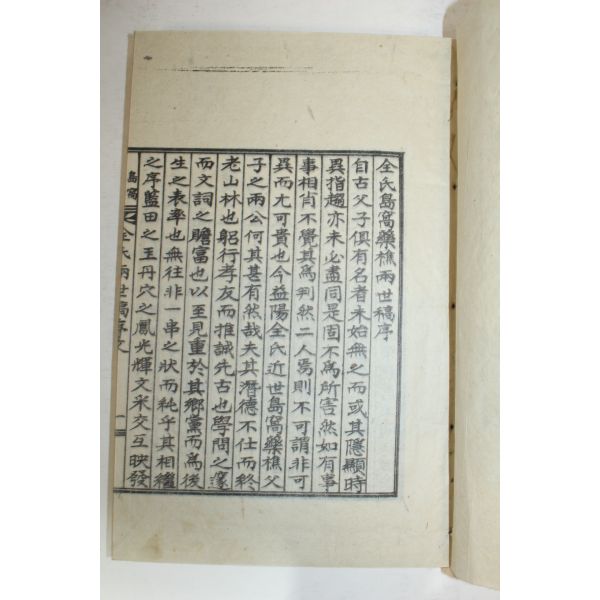 全氏島窩藥樵兩世稿序
自古父子俱有名者未始無之而或其隱顯時
異指趨亦未必盡同是固不為所害然如有事
事相肖不覺其為判然二人焉則不可謂非可
異而尤可貴也今益陽全氏近世島窩藥樵父
子之兩公何其甚有然哉夫其潛德不仕而終
老山林也躬行孝友而推誠先古也學問之
而文詞之贍富也以至見重於其鄉黨而為後
生之表率也無往非一串之狀而純乎其相繼
之序藍田之玉丹穴之鳳光輝文采交互映發
島窩
全氏兩世稿序文
一